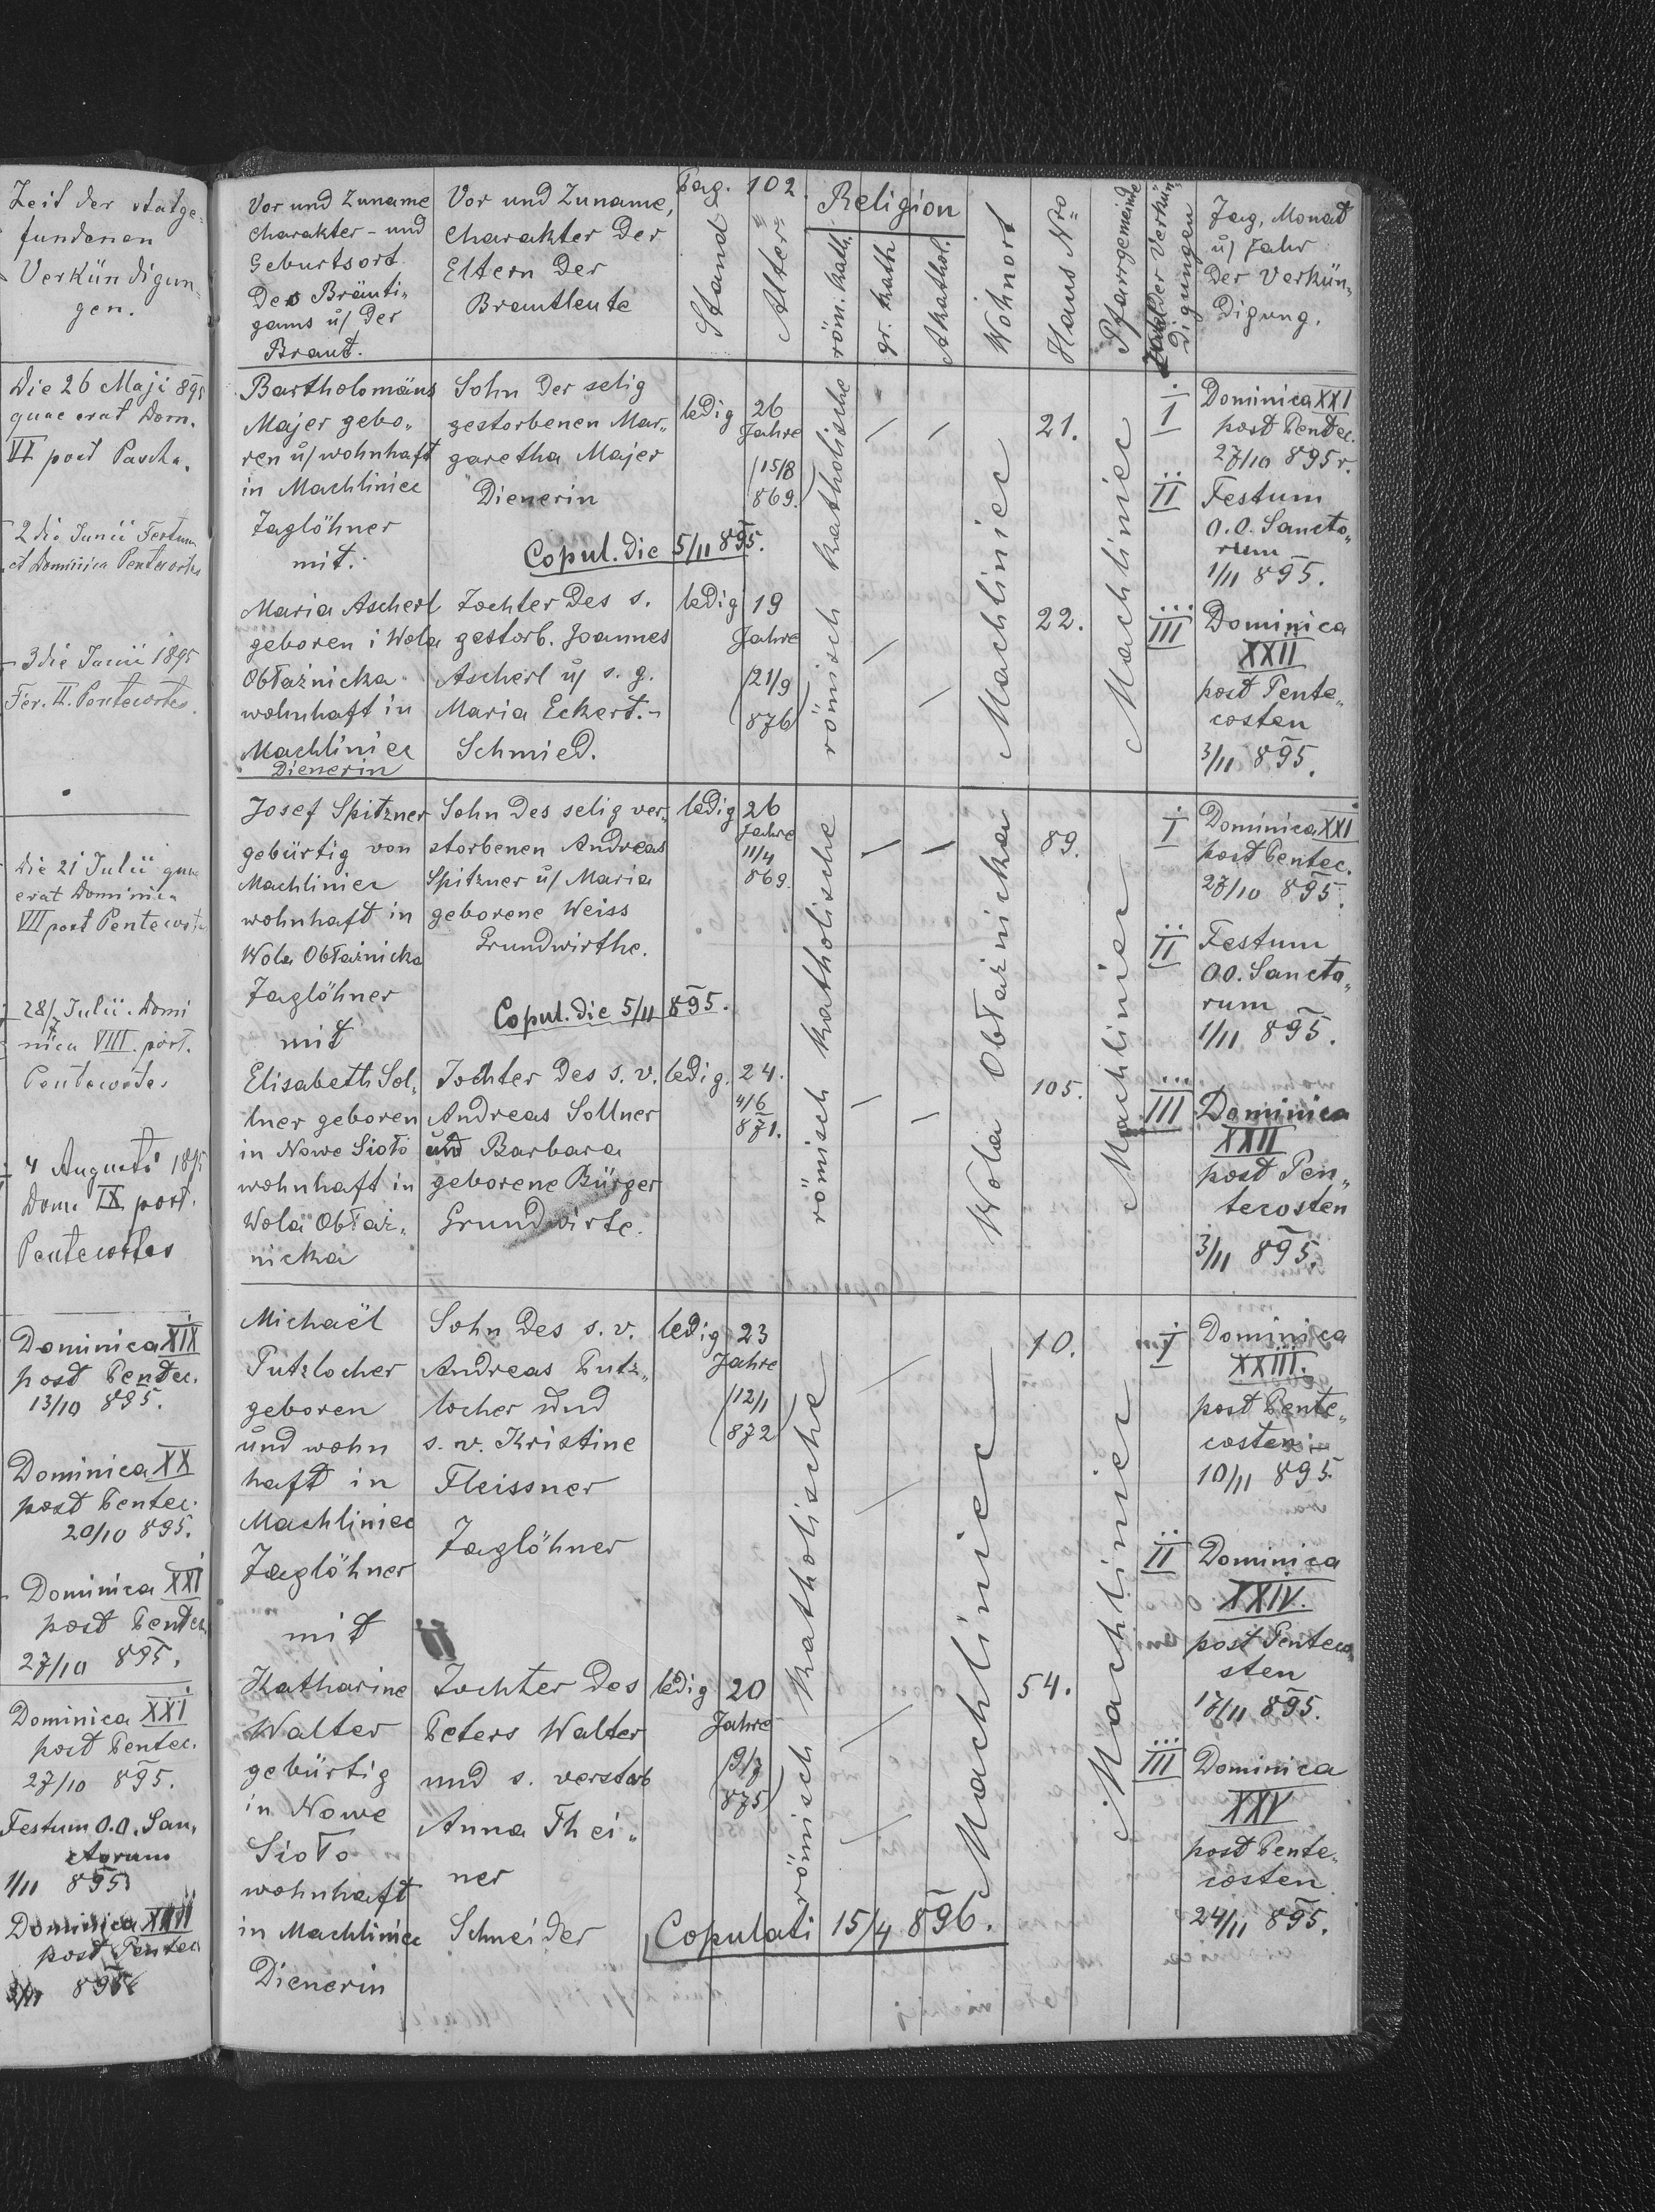 Zeit der statge-
fundenen
Verkündigun-
gen.
Die 26 Maji 895
quae erat Dom.
VI post Pascha.
2 die Junii Festum
et Dominica Pentecostes
3 die Junii 1895
Fer. II. Pentecostes.
die 21 Julii quae
erat Dominica
VII post Pentecostes
28/7 Julii. Domi
nica VIII. post.
Pentecostes
4 Augusti 1895
Dom. IX post.
Pentecostes
Dominica XIX
post Pentec.
13/10 895.
Dominica XX
post Pentec.
20/10 895.
Dominica XXI
post Pentec.
27/10 895.
Dominica XXI
post Pentec.
27/10 895.
Festum O.O. San„
ctorum
1/11 895
Dominica XXII
post Pentec
3/11 895
Pag. 102.
Vor und Zuname
Charakter - und
Geburtsort
Des Bräuti„
gams u/ Der
Braut.
Vor und Zuname,
Charakter Der
Eltern Der
Brautleute
Stand
Alter
Religion
röm. kath.
gr. kath
Akathol.
Wohnort
Haus Nro
Pfarrgemeinde
Zahl der Verkün„
digungen
Tag, Monat
u/ Jahr
Der Verkün„
digung.
Bartholomäus
Majer gebo„
ren u/ wohnhaft
in Machliniec
Taglöhner
mit.
Sohn der selig
gestorbenen Mar„
garetha Majer
Dienerin
ledig
26
Jahre
(15/8
869.)
Copul. die 5/11 895.
Maria Ascherl
geboren i Wola
Obłaźnicka
wohnhaft in
Machliniec
Dienerin
Tochter Des s.
gestorb. Joannes
Ascherl u/ s. g.
Maria Eckert.-
Schmied.
ledig
19
Jahre
(21/9
876)
römisch katholische
Machliniec
21.
22.
Machliniec
I
Dominica XXI
post Pentec.
27/10 895 r.
II
Festum
O.O. Sancto„
rum
1/11 895.
III
Dominica
XXII
post Pente„
costen
3/11 895.
Josef Spitzner
gebürtig von
Machliniec
wohnhaft in
Wola Obłaźnicka
Taglöhner
mit
Sohn Des selig ver„
storbenen Andreas
Spitzner u/ Maria
geborene Weiss
Grundwirthe.
ledig
26
Jahre
11/4
869.
Copul. die 5/11 895.
Elisabeth Sol„
lner geboren
in Nowe Sioło
wohnhaft in
Wola Obłaz„
nicka
Tochter Des s. v.
Andreas Sollner
und Barbara
geborene Bürger
Grundwirte.
ledig.
24.
4/6
871.
römisch katholische
Wola Obłaźnicka
89.
105.
Machliniec
I
Dominica XXI
post Pentec.
27/10 895.
II
Festum
OO. Sancto„
rum
1/11 895.
III
Dominica
XXII
post Pen„
tecosten
3/11 895.
Michaël
Putzlocher
geboren
und wohn
haft in
Machliniec
Taglöhner
mit
Sohn Des s. v.
Andreas Putz„
locher und
s. v. Kristine
Fleissner
Taglöhner
ledig
23
Jahre
(12/1
872)
Katharine
Walter
gebürtig
in Nowe
Sioło
wohnhaft
in Machliniec
Dienerin
Tochter Des
Peters Walter
und s. verstorb
Anna Thei„
ner
Schneider
ledig
20
Jahre
(9/7
875)
Copulati 15/4 896.
römisch katholische
Machliniec
10.
54.
Machliniec
I
Dominica
XXIII.
post Pente„
costen
10/11 895.
II
Dominica
XXIV.
post Penteco„
sten
17/11 895.
III
Dominica
XXV
post Pente„
costen
24/11 895.